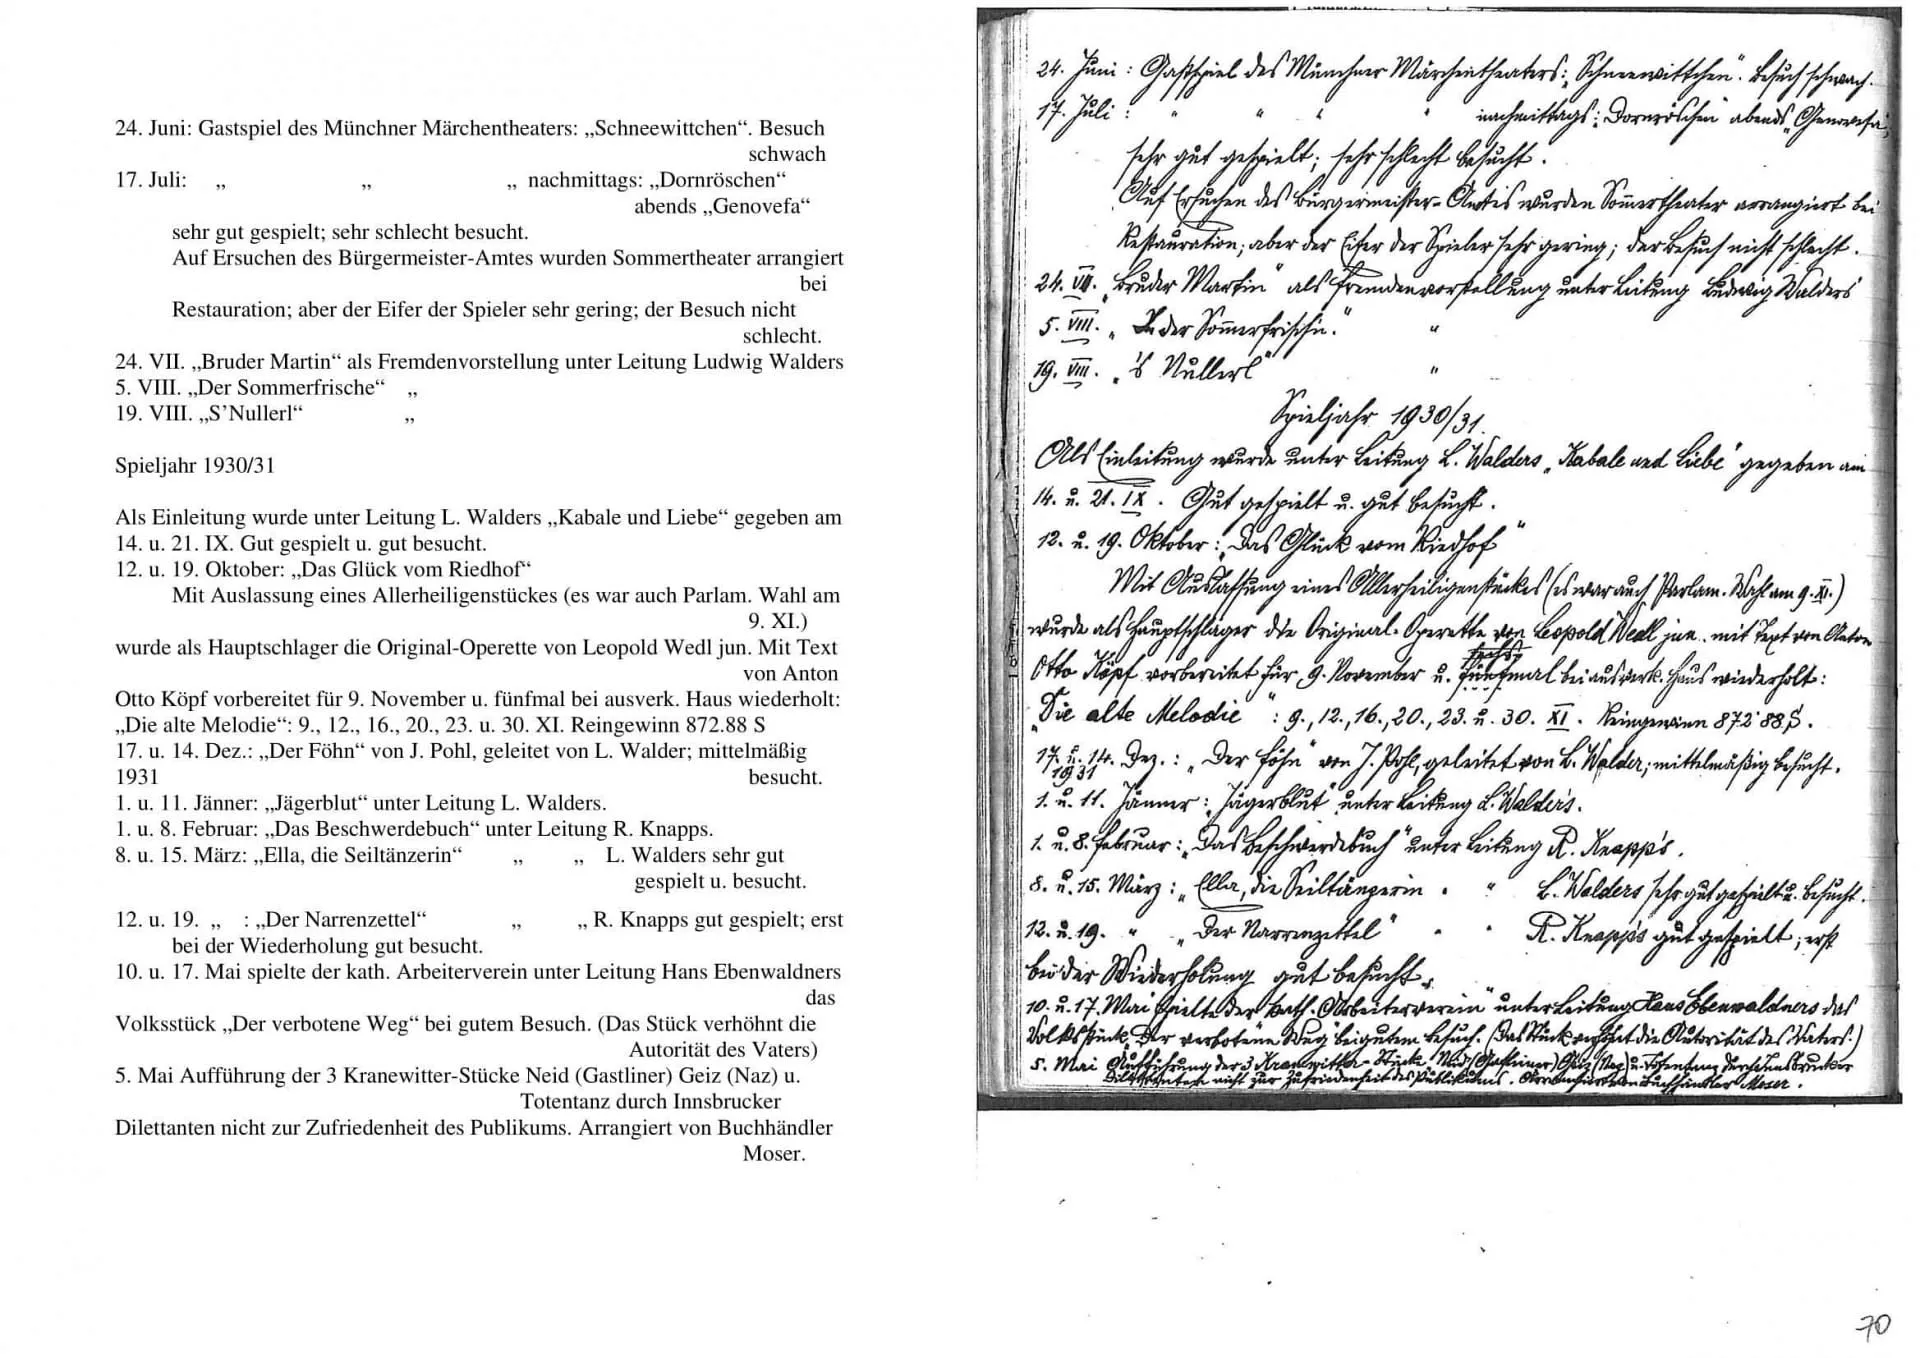 24. Juni: Gastspiel des Münchner Märchentheaters: „Schneewittchen“. Besuch
schwach
17. Juli: „ „ „ nachmittags: „Dornröschen“
abends „Genovefa“
sehr gut gespielt; sehr schlecht besucht.
Auf Ersuchen des Bürgermeister-Amtes wurden Sommertheater arrangiert
bei
Restauration; aber der Eifer der Spieler sehr gering; der Besuch nicht
schlecht.
24. VII. „Bruder Martin“ als Fremdenvorstellung unter Leitung Ludwig Walders
5. VIII. „Der Sommerfrische“ „
19. VIII. „S’Nullerl“ „
Spieljahr 1930/31
Als Einleitung wurde unter Leitung L. Walders „Kabale und Liebe“ gegeben am
14. u. 21. IX. Gut gespielt u. gut besucht.
12. u. 19. Oktober: „Das Glück vom Riedhof“
Mit Auslassung eines Allerheiligenstückes (es war auch Parlam. Wahl am
9. XI.)
wurde als Hauptschlager die Original-Operette von Leopold Wedl jun. Mit Text
von Anton
Otto Köpf vorbereitet für 9. November u. fünfmal bei ausverk. Haus wiederholt:
„Die alte Melodie“: 9., 12., 16., 20., 23. u. 30. XI. Reingewinn 872.88 S
17. u. 14. Dez.: „Der Föhn“ von J. Pohl, geleitet von L. Walder; mittelmäßig
1931 besucht.
1. u. 11. Jänner: „Jägerblut“ unter Leitung L. Walders.
1. u. 8. Februar: „Das Beschwerdebuch“ unter Leitung R. Knapps.
8. u. 15. März: „Ella, die Seiltänzerin“ „ „ L. Walders sehr gut
gespielt u. besucht.
12. u. 19. „ : „Der Narrenzettel“ „ „ R. Knapps gut gespielt; erst
bei der Wiederholung gut besucht.
10. u. 17. Mai spielte der kath. Arbeiterverein unter Leitung Hans Ebenwaldners
das
Volksstück „Der verbotene Weg“ bei gutem Besuch. (Das Stück verhöhnt die
Autorität des Vaters)
5. Mai Aufführung der 3 Kranewitter-Stücke Neid (Gastliner) Geiz (Naz) u.
Totentanz durch Innsbrucker
Dilettanten nicht zur Zufriedenheit des Publikums. Arrangiert von Buchhändler
Moser.
24. Juni: Gastspiel des Münchner Märchentheaters: „Schneewittchen“. Besuch schwach.
17. Juli: " " " " nachmittags: „Dornröschen“ abends „Genovefa“,
sehr gut gespielt; sehr schlecht besucht.
Auf Ersuchen des Bürgermeister-Amtes wurden Sommertheater arrangiert bei
Restauration; aber der Eifer der Spieler sehr gering; der Besuch nicht schlecht.
24. VII. „Bruder Martin“ als Fremdenvorstellung unter Leitung Ludwig Walders
5. VIII. „In der Sommerfrische.“ "
19. VIII. „'s Nullerl“ "
Spieljahr 1930/31.
Als Einleitung wurde unter Leitung L. Walders „Kabale und Liebe“ gegeben am
14. u. 21. IX. Gut gespielt u. gut besucht.
12. u. 19. Oktober: „Das Glück vom Riedhof“
Mit Auslassung eines Allerheiligenstückes (es war auch Parlam. Wahl am 9. XI.)
wurde als Hauptschlager die Original-Operette von Leopold Wedl jun. mit Text von Anton
sechs
Otto Köpf vorbereitet für 9. November u. fünfmal bei ausverk. Haus wiederholt:
„Die alte Melodie“: 9., 12., 16., 20., 23. u. 30. XI. Reingewinn 872.88 S.
17. u. 14. Dez.: „Der Föhn“ von J. Pohl, geleitet von L. Walder; mittelmäßig besucht.
1931
1. u. 11. Jänner: „Jägerblut“ unter Leitung L. Walders.
1. u. 8. Februar: „Das Beschwerdebuch“ unter Leitung R. Knapp's.
8. u. 15. März: „Ella, die Seiltänzerin " " L. Walders sehr gut gespielt u. besucht.
12. u. 19. " „Der Narrenzettel“ " " R. Knapp's gut gespielt; erst
bei der Wiederholung gut besucht.
10. u. 17. Mai spielte der „kath. Arbeiterverein“ unter Leitung Hans Ebenwaldners das
Volksstück „Der verbotene Weg“ bei gutem Besuch. (Das Stück verhöhnt die Autorität des Vaters.)
5. Mai Aufführung der 3 Kranewitter-Stücke Neid (Gastleiner) Geiz (Naz) u. Totentanz durch Innsbrucker
Dilettanten nicht zur Zufriedenheit des Publikums. Arrangiert von Buchhändler Moser.
70